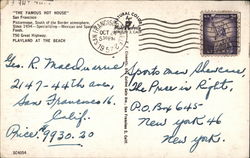 "THE FAMOUS HOT HOUSE"
San Francisco
Picturesque, South of the Border atmosphere.
Since 1934 — Specializing — Mexican and Spanish
Foods.
The Great Highway.
PLAYLAND AT THE BEACH
SAN FRANCISCO
OCT
1957
Geo. R. MacQuarrie
2147-44th ave.
San Francisco 16.
Calif.
Price: 9930.20
Sports mens Showcase
The Price is Right,
P.O. Box 645
New York 46
New York.